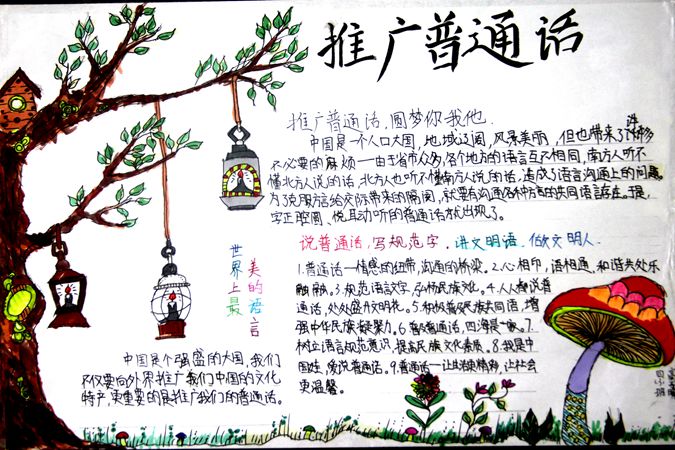 推广普通话
推广普通话,圆梦你我他.
中国是一个人口大国,地域辽阔,风景美丽,但也带来了许多
不必要的麻烦——由于省市众多,各个地方的语言互不相同,南方人听不
懂北方人说的话,北方人也听不懂南方人说的话,造成了语言沟通上的问题。
为了克服方言给交际带来的隔阂,就要有沟通各种方言的共同语言存在。于是,
字正腔圆、悦耳动听的普通话就出现了。
说普通话,写规范字,讲文明语,做文明人.
1.普通话——情感的纽带,沟通的桥梁。2.心相印,语相通,和谐共处乐
融融。3.规范语言文字,弘扬民族文化。4.人人都说普
通话,处处盛开文明花。5.积极普及民族共同语,增
强中华民族凝聚力。6.普及普通话,四海是一家。7.
树立语言规范意识,提高民族文化素质。8.我是中
国娃,爱说普通话。9.普通话——让
更温馨。
世界上最
美的语言
中国是个强盛的大国,我们
不仅要向外界推广我们中国的文化
特产,更重要的是推广我们的普通话。